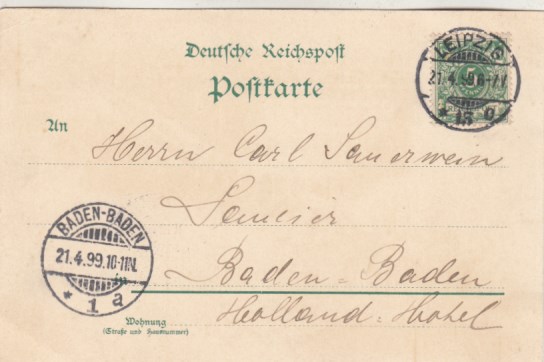 Deutsche Reichspost
Postkarte
LEIPZIG
21.4.99 6-7V
* 13 g
An
Herrn Carl Sauerwein
BADEN-BADEN
21.4.99.10-11N.
* 1 a
in Baden-Baden
Holland-Hotel
Wohnung
(Straße und Hausnummer)